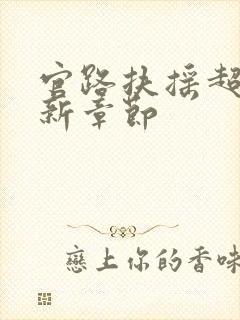 官路扶摇超
新章节
戀上你的香味